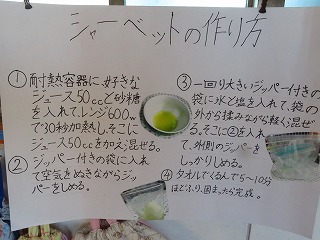 シャーベットの作り方
① 耐熱容器に、好きな
ジュース50ccと砂糖
を入れて、レンジ600w
で30秒加熱し、そこに
ジュース50ccを加え混ぜる。
② ジッパー付きの袋に入れ
て空気をぬきながらジッ
パーをしめる。
③ 一回り大きいジッパー付きの
袋に氷と塩を入れて、袋の
外から揉みながら軽く混ぜ
る。そこに②を入れ
て、外側のジッパーを
しっかりしめる。
④ タオルでくるんで5～10分
ほどふり、固まったら完成。